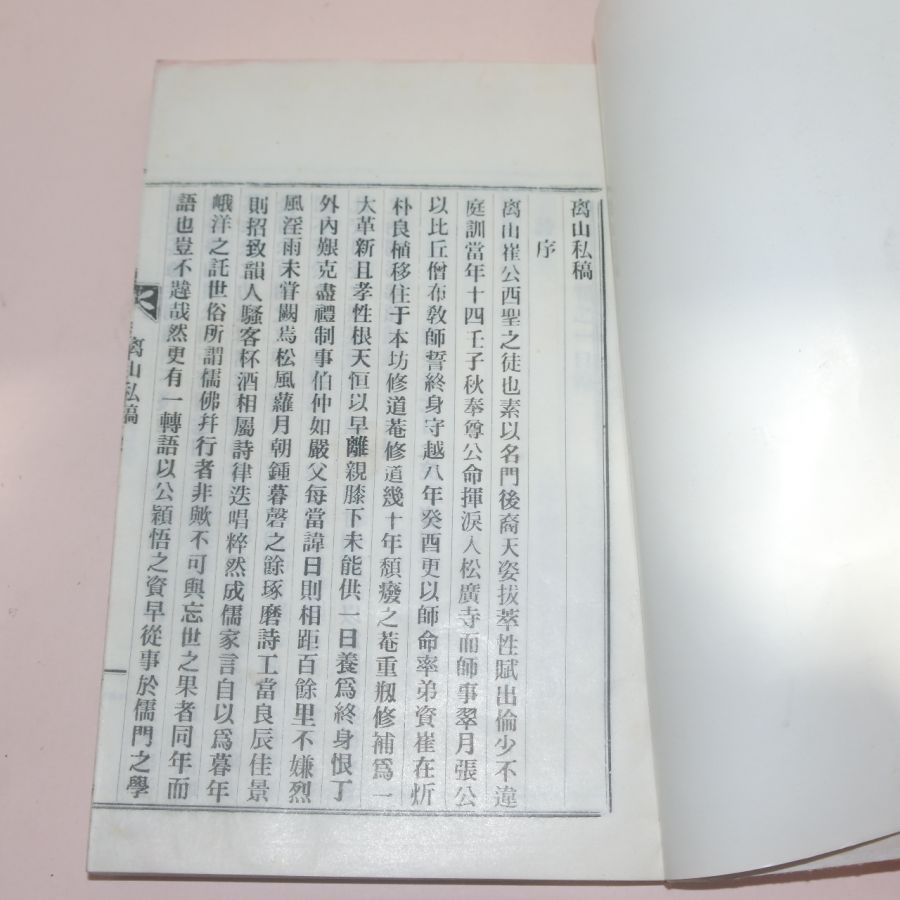 离山私稿
序
离山崔公西聖之徒也素以名門後裔天姿拔萃性賦出倫少不違
庭訓當年十四壬子秋奉尊公命揮淚入松廣寺而師事翠月張公
以比丘僧布教師誓終身守越八年癸酉更以師命率弟資崔在炘
朴良植移住于本坊修道菴修道幾十年頹癈之菴重剏修補爲一
大革新且孝性根天恒以早離親膝下未能供一日養爲終身恨丁
外內艱克盡禮制事伯仲如嚴父每當諱日則相距百餘里不嫌烈
風淫雨未甞闕焉松風蘿月朝鍾暮磬之餘琢磨詩工當良辰佳景
則招致韻人騷客杯酒相屬詩律迭唱粹然成儒家言自以爲暮年
峨洋之託世俗所謂儒佛幷行者非歟不可與忘世之果者同年而
語也豈不韙哉然更有一轉語以公穎悟之資早從事於儒門之學
离山私稿